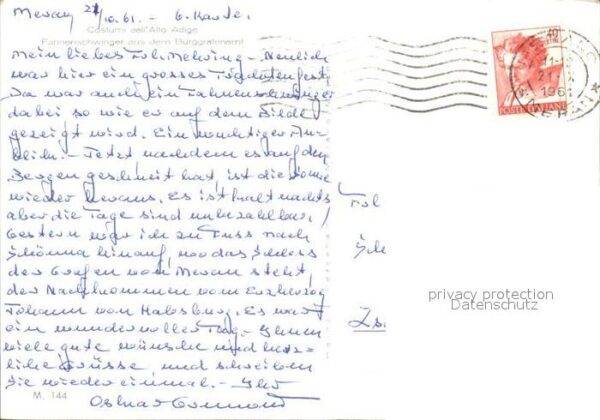 Meran 21/10.61. - 6. Karte.
Costumi dell'Alto Adige
Fahnenschwinger aus dem Burggrafenamt
Mein liebes Frl. Mehring - Neulich
war hier ein grosses Trachtenfest,
Da war auch ein Fahnenschwinger
dabei so wie er auf dem Bilde
gezeigt wird. Ein wuchtiger An-
blick. - Jetzt nachdem es auf den
Bergen geschneit hat, ist die Sonne
wieder heraus. Es ist kalt nachts
aber die Tage sind unbezahlbar,
Gestern war ich zu Fuss nach
Schönna hinauf, wo das Schloss
der Grafen von Meran steht,
der Nachkommen vom Erzherzog
Johann von Habsburg. Es war
ein wundervoller Tag. - Ihnen
viele gute Wünsche und herz-
liche Grüsse, und schreiben
Sie wieder einmal. - Ihr
M. 144
40
POSTE ITALIANE
21
196
MERA
Frl
Sch
privacy protection
Datenschutz